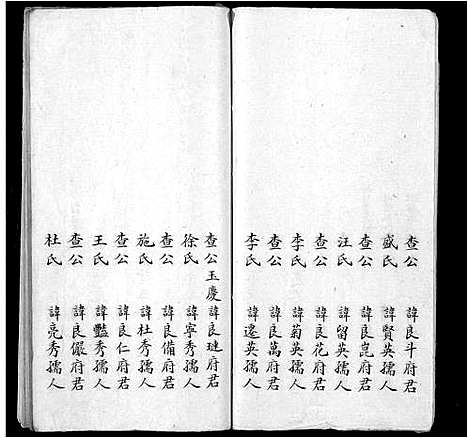 查公 諱良斗府君
盛氏 諱賢英孺人
查公 諱良崑府君
汪氏 諱留英孺人
查公 諱良花府君
李氏 諱菊英孺人
查公 諱良萬府君
李氏 諱蓮英孺人
查公玉慶諱良璉府君
徐氏 諱寧秀孺人
查公 諱良備府君
施氏 諱杜秀孺人
查公 諱良仁府君
王氏 諱豔秀孺人
查公 諱良儼府君
杜氏 諱亮秀孺人